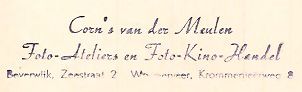 Corn's van der Meulen
Foto-Ateliers en Foto-Kino-Handel
Beverwijk, Zeestraat 2 Wormerveer, Krommenieerweg 8